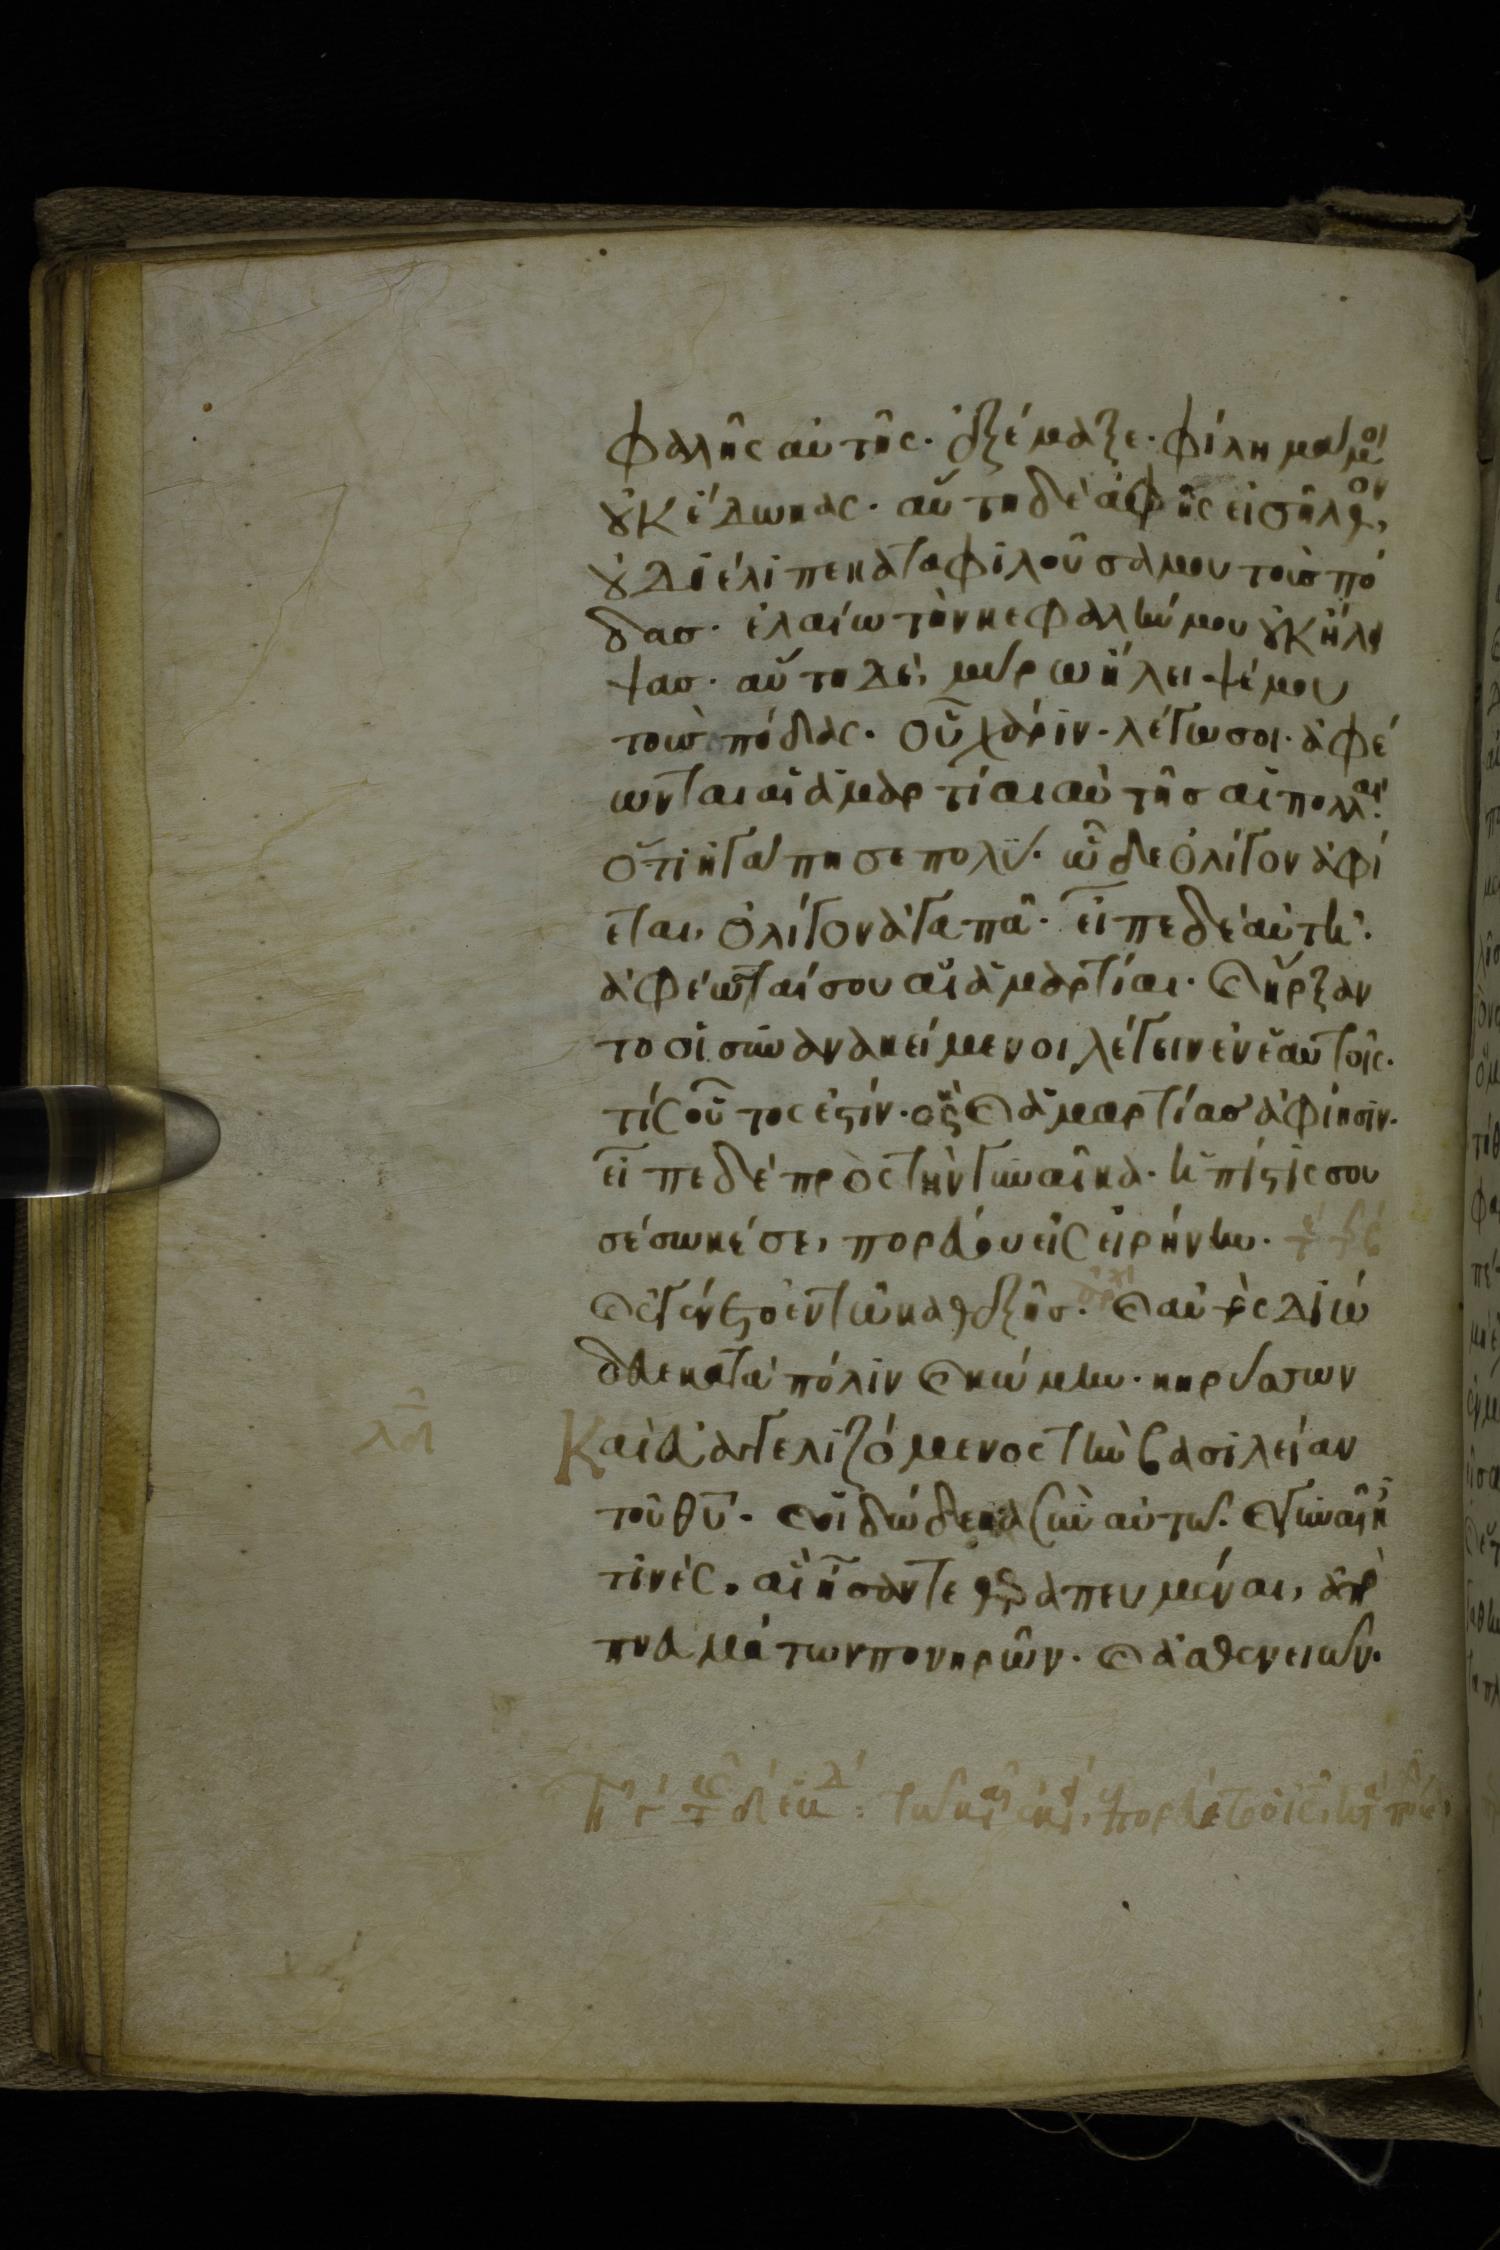 φαλῆς αὐτῆς· ἐξέμαξε· φίλημά μοι
οὐκ ἔδωκας· αὕτη δὲ ἀφ ἧς εἰσῆλθον,
οὐ διέλιπε καταφιλοῦσα μου τοὺς πό
δας· ἐλαίω τὴν κεφαλήν μου οὐκ ἤλει
ψας· αὕτη δὲ, μύρω ἤλειψέ μου
τοὺς πόδας· οὗ χάριν· λέγω σοι· ἀφέ
ωνται αἱ ἁμαρτίαι αὐτῆς αἱ πολλαί·
ὅτι ἠγάπησε πολύ· ὧ δὲ ὀλίγον ἀφί
εται, ὀλίγον ἀγαπᾶ· εἶπε δὲ αὐτῆ·
ἀφέωνταί σου αἱ ἁμαρτίαι· καὶ ἤρξαν
το οἱ συνανακείμενοι λέγειν ἐν ἑαυτοῖς·
τίς οὗτος ἐστίν· ὃς καὶ ἁμαρτίας ἀφίησιν·
εἶπε δὲ πρὸς τὴν γυναῖκα· ἡ πίστις σου
σέσωκέ σε, πορεύου εἰς εἰρήνην·
καὶ ἐγένετο ἐν τῶ καθεξῆς· καὶ αὐτὸς διώ
δευε κατὰ πόλιν καὶ κώμην· κηρύσσων
Καὶ εὐαγγελιζόμενος τὴν βασιλείαν
τοῦ θυ· καὶ οἱ δώδεκα σὺν αὐτῶ· καὶ γυναῖκές
τινὲς, αἳ ἦσαν τεθεραπευμέναι, ἀπὸ
πνευμάτων πονηρῶν· καὶ ἀσθενειῶν·